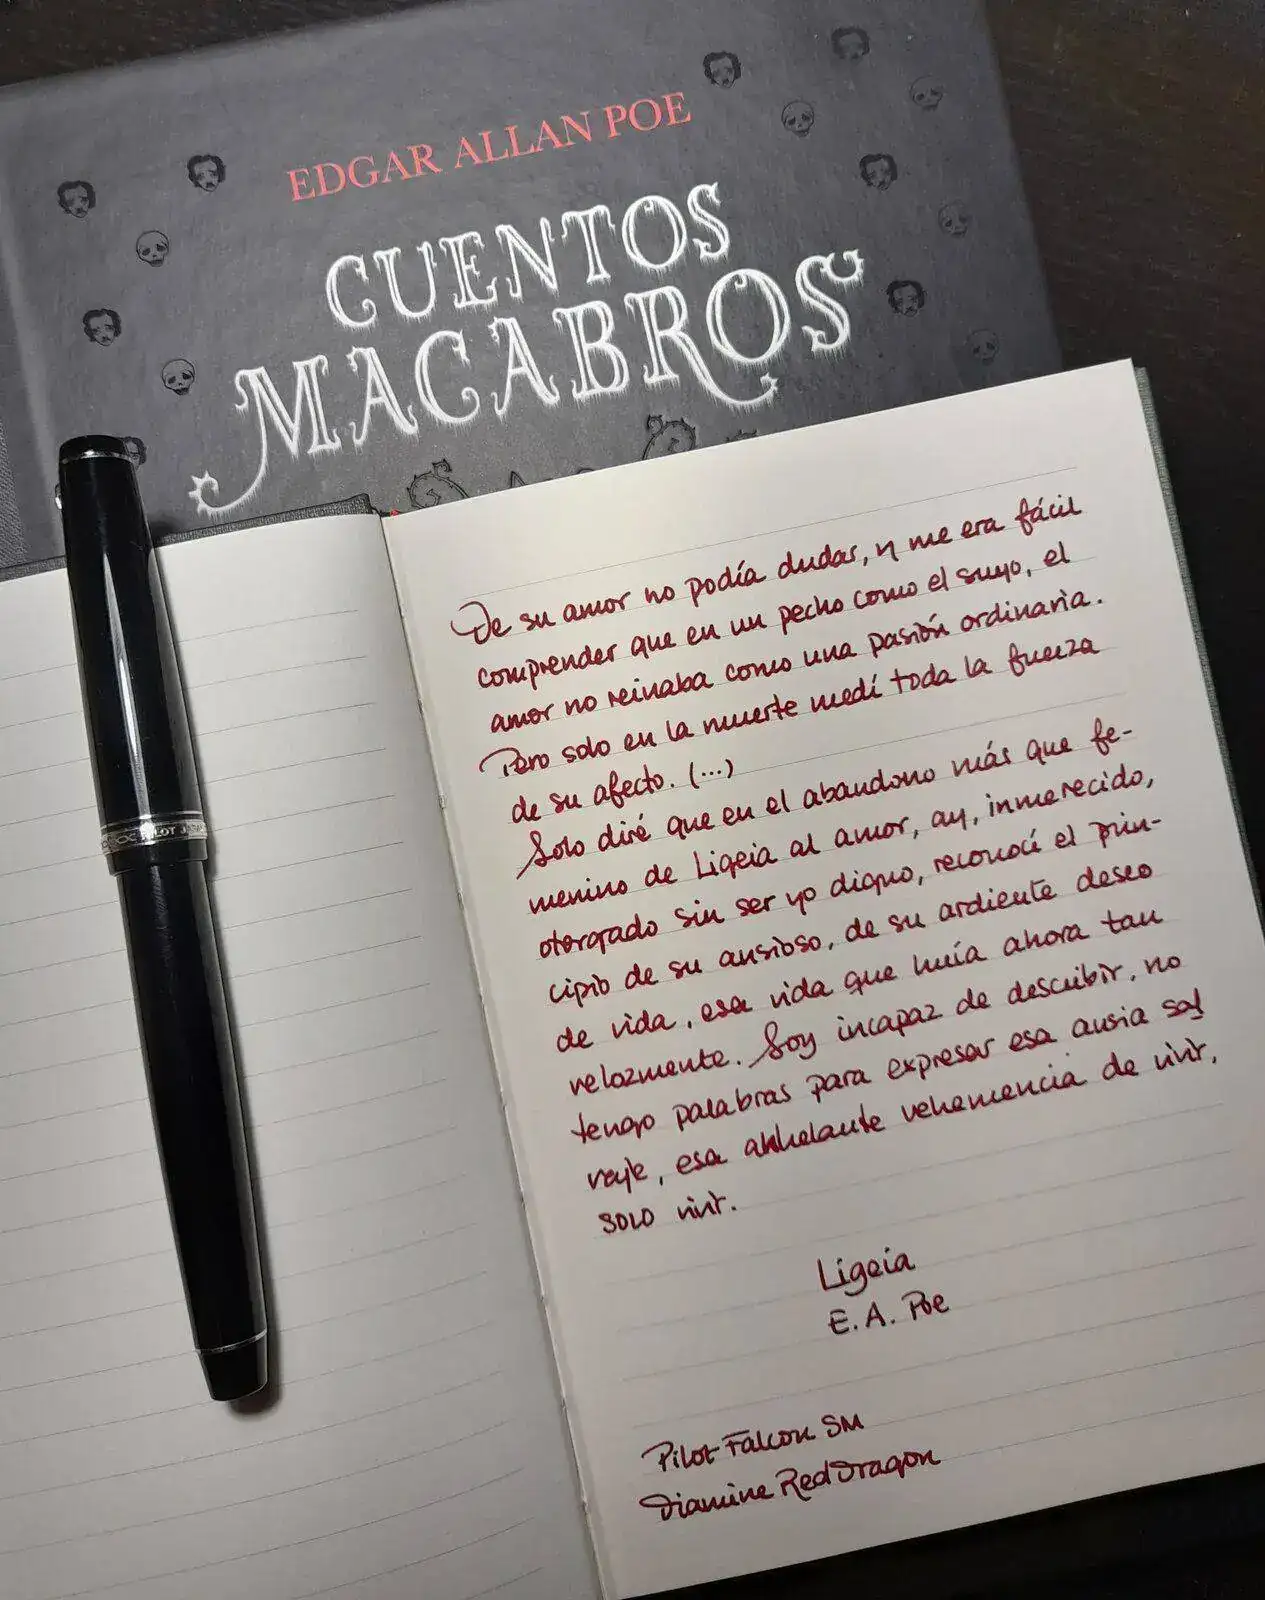 EDGAR ALLAN POE
CUENTOS
MACABROS
De su amor no podía dudar, y me era fácil
comprender que en un pecho como el suyo, el
amor no reinaba como una pasión ordinaria.
Pero solo en la muerte medí toda la fuerza
de su afecto. (...)
Solo diré que en el abandono más que fe-
menino de Ligeia al amor, ay, inmerecido,
otorgado sin ser yo digno, reconocí el prin-
cipio de su ansioso, de su ardiente deseo
de vida, esa vida que huía ahora tan
velozmente. Soy incapaz de describir, no
tengo palabras para expresar esa ansia sal
vaje, esa anhelante vehemencia de vivir,
solo vivir.
Ligeia
E. A. Poe
Pilot Falcon SM
Diamine Red Dragon
PILOT